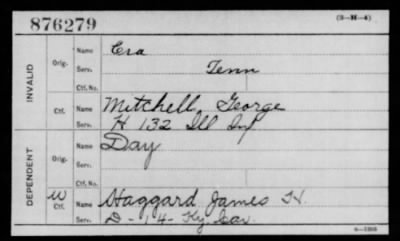 876279
(3-M-4)
INVALID
Orig. Name Era
Serv. Tenn
Ctf. No.
Ctf. Name Mitchell, George
Serv. H 132 Ill Inf
DEPENDENT
Orig. Name Day
Serv.
Ctf. No.
W Ctf. Name Haggard James H.
Serv. D-14-Ky Cav.